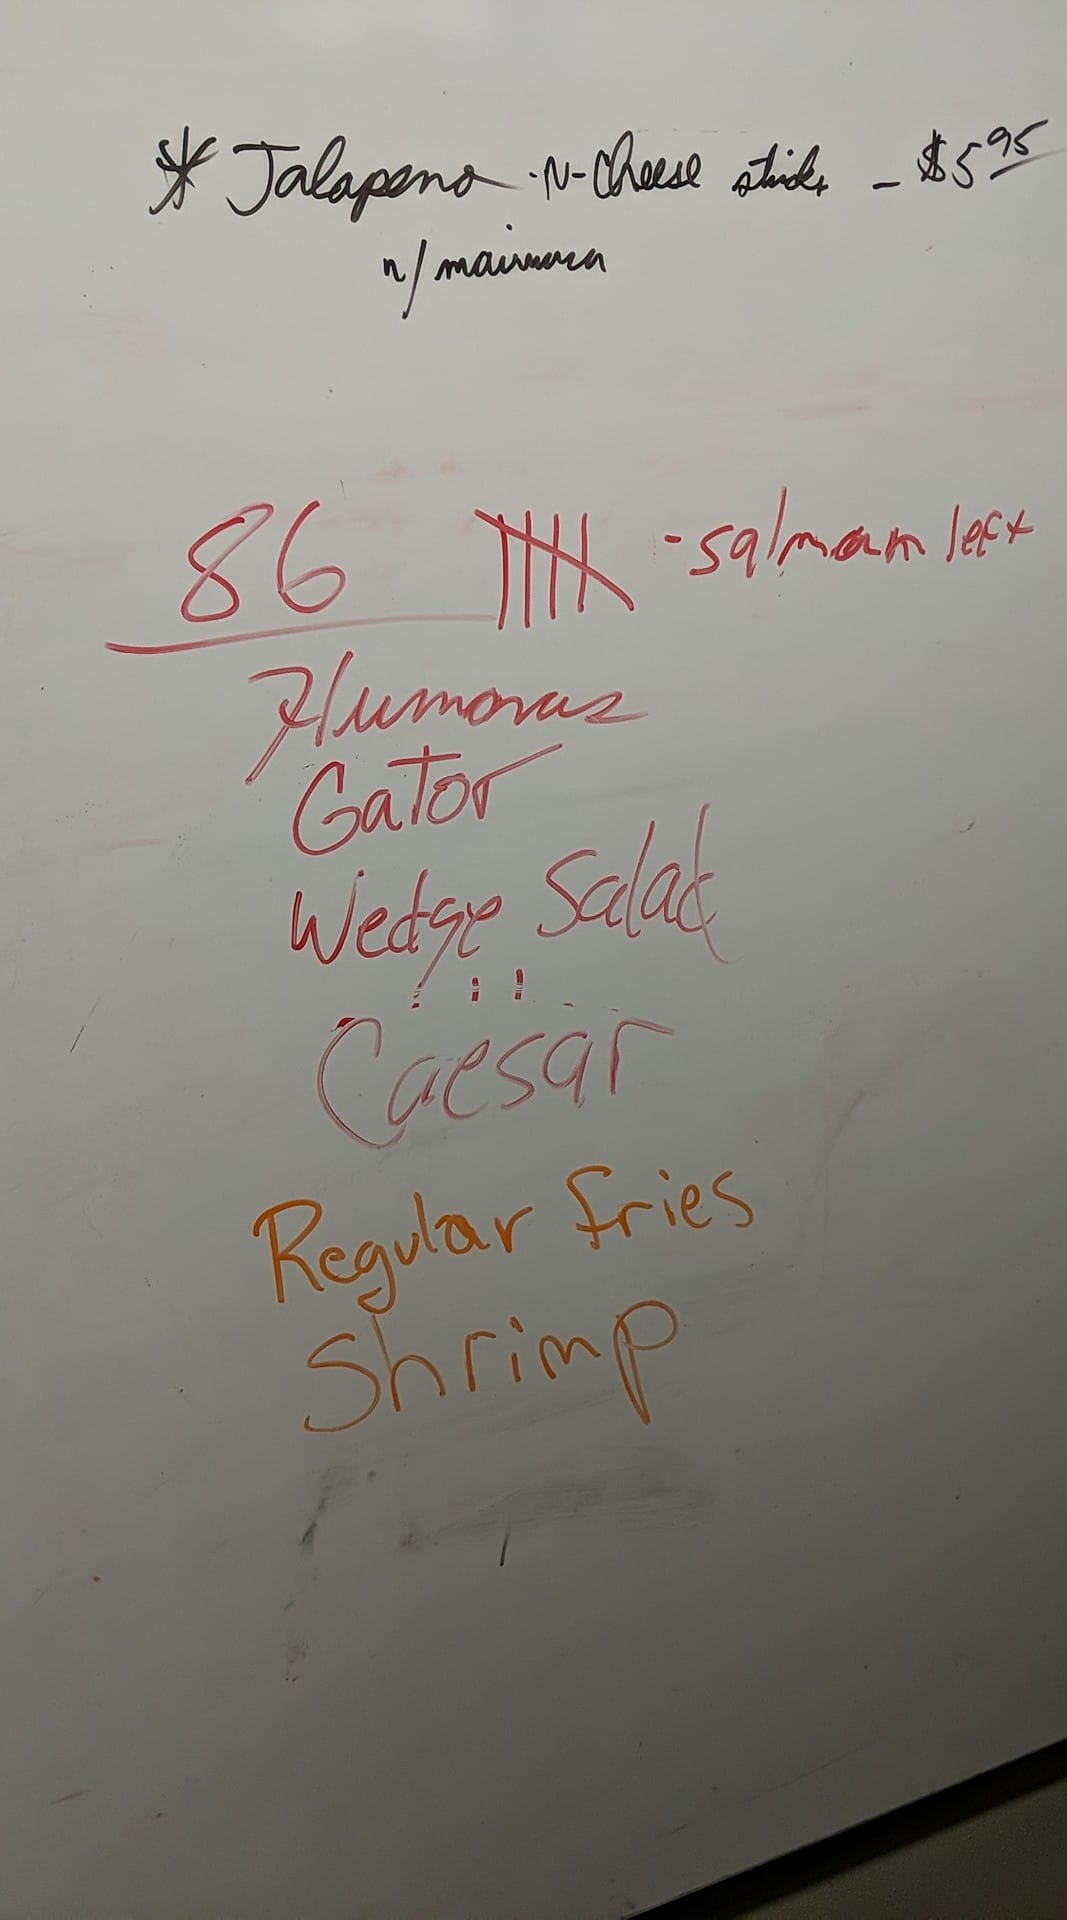 * Jalapeno -N- Cheese sticks - $5.95
w/ marinara
86 - salmon left
Humorus
Gator
Wedge Salad
Caesar
Regular fries
Shrimp